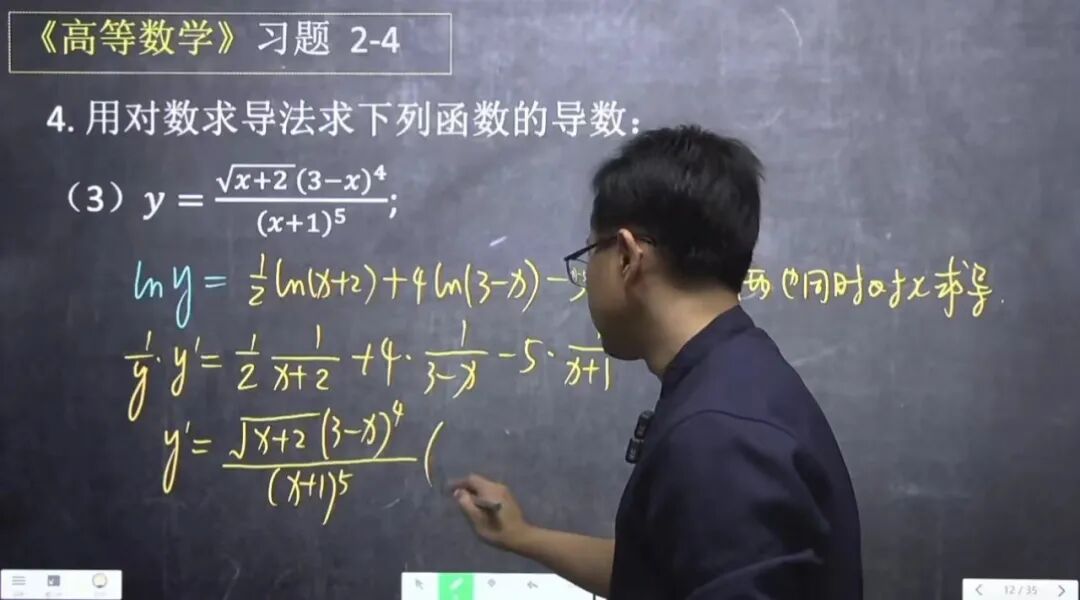 《高等数学》习题 2-4
4. 用对数求导法求下列函数的导数：
（3）y = \frac{\sqrt{x+2}(3-x)^4}{(x+1)^5};
ln y = \frac{1}{2} ln(x+2) + 4 ln(3-x) - 5 两边同时对x求导.
\frac{1}{y} · y' = \frac{1}{2} \frac{1}{x+2} + 4 · \frac{1}{3-x} - 5 · \frac{1}{x+1}
y' = \frac{\sqrt{x+2}(3-x)^4}{(x+1)^5} (
12/35